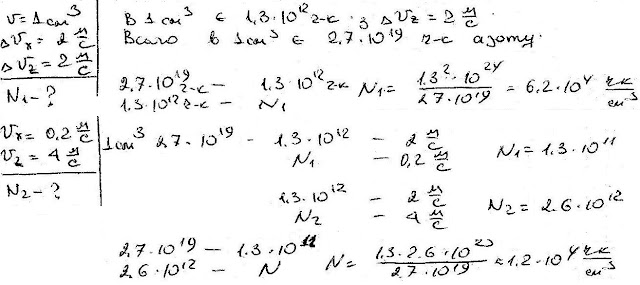 V = 1 см³
ΔVx = 2 м/с
ΔVz = 2 м/с
N₁ - ?
Vx = 0,2 м/с
Vz = 4 м/с
N₂ - ?
В 1 см³ є 1,3·10¹² ч-к з ΔVz = 2 м/с
Всього в 1 см³ є 2,7·10¹⁹ ч-к азоту.
2,7·10¹⁹ ч-к – 1,3·10¹² ч-к
1,3·10¹² ч-к – N₁
N₁ = 1,3²·10²⁴ / 2,7·10¹⁹ = 6,2·10⁴ чк/см³
1 см³ 2,7·10¹⁹ - 1,3·10¹² - 2 м/с
N₁ - 0,2 м/с N₁ = 1,3·10¹¹
1,3·10¹² - 2 м/с
N₂ - 4 м/с N₂ = 2,6·10¹²
2,7·10¹⁹ – 1,3·10¹¹
2,6·10¹² – N
N = 1,3·2,6·10²³ / 2,7·10¹⁹ = 1,2·10⁴ чк/см³